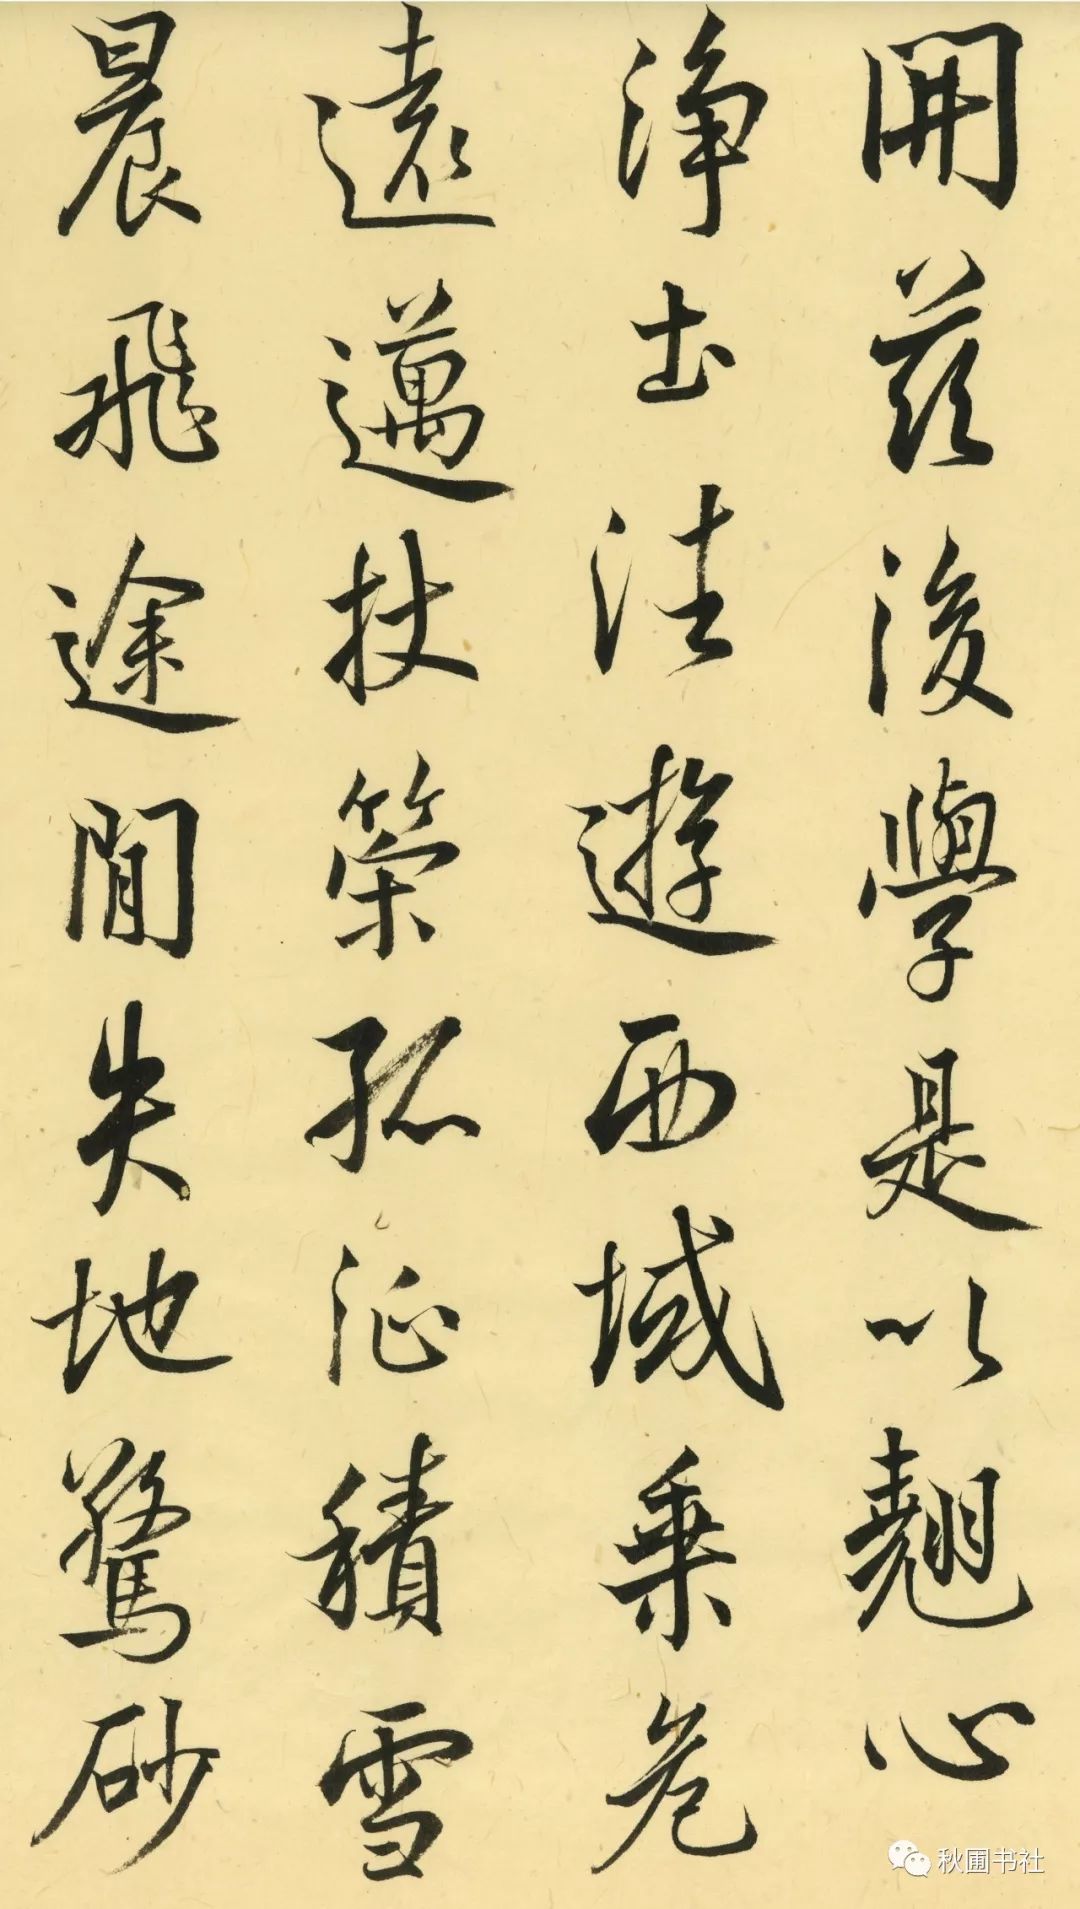 開茲後學是以翹心
淨土法遊西域乗危
遠邁杖策孤征積雪
晨飛途閒失地驚砂
秋圃书社